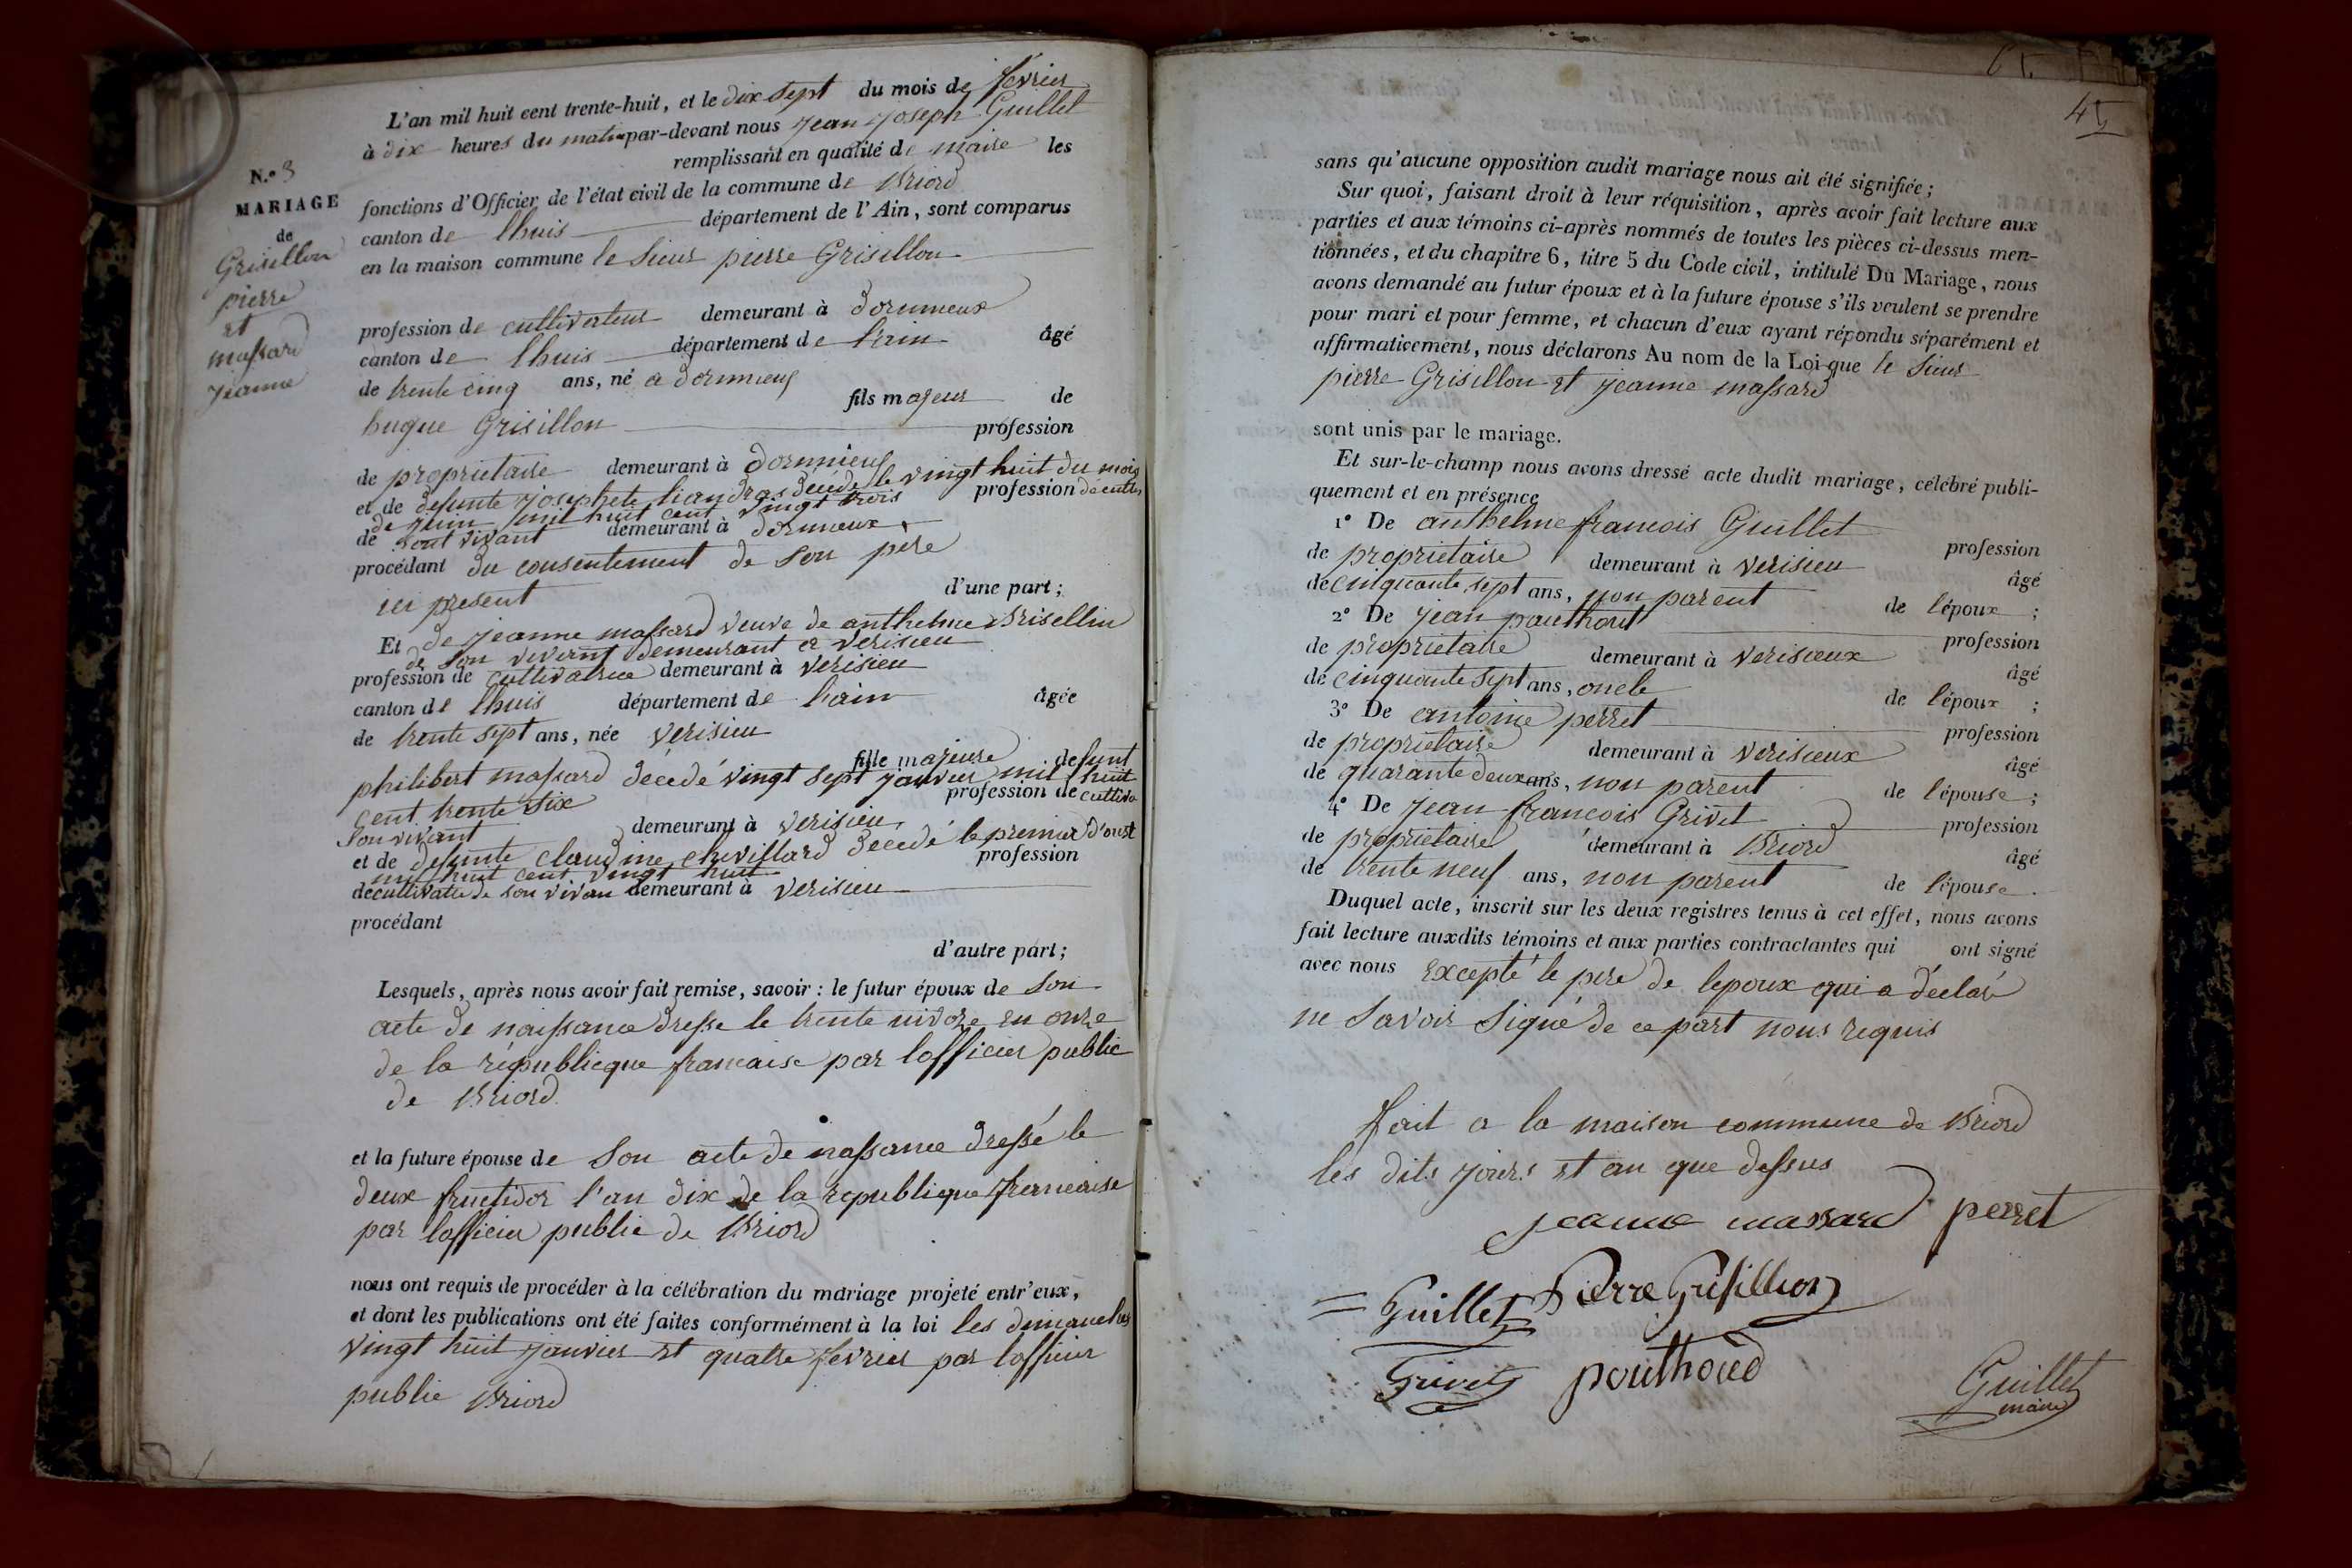 L'an mil huit cent trente-huit, et le dix sept du mois de fevrier
à dix heures du matin par-devant nous jean joseph Guillet
remplissant en qualité de maire les
fonctions d'Officier de l'état civil de la commune de Briord
canton de lhuis département de l'Ain, sont comparus
en la maison commune le sieur pierre Grisillon
N.º 3
MARIAGE
de
Grisillon
pierre
et
massard
jeanne
profession de cultivateur demeurant à dornmeux
canton de lhuis département de l'ain âgé
de trente cinq ans, né a dornmeuf
fils majeur de
hugue Grisillon profession
de proprietaire demeurant à dornmieuf
et de defunte josephete liandras decede le vingt huit du mois
de juin mil huit cent vingt trois profession de culti
de sont vivant demeurant à dornmeux
procédant du consentement de son pere
ici present d'une part;
Et de jeanne massard veuve de anthelme Brisellin
de son vivant demeurant a verisieu
profession de cultivatrice demeurant à verisieu
canton de lhuis département de l'ain âgée
de trente sept ans, née verisieu
fille majeure defunt
philibert massard décédé vingt sept janvier mil huit
cent trente six profession de cultiva
son vivant demeurant à verisieu
et de defunte claudine chevillard decedé le premier d'oust
mil huit cent vingt huit profession
de cultivatri de son vivan demeurant à verisieu
procédant
d'autre part;
Lesquels, après nous avoir fait remise, savoir : le futur époux de son
acte de naissance dresse le trente nivoze en onze
de la républicque francaise par lofficier public
de Briord
et la future épouse de son acte de nassance dressé le
deux fructidor l'an dix de la republique francaise
par lofficier public de Briord
nous ont requis de procéder à la célébration du mariage projeté entr'eux,
et dont les publications ont été faites conformément à la loi les dimanches
vingt huit janvier et quatre fevrier par lofficier
public Briord
45
sans qu'aucune opposition audit mariage nous ait été signifiée;
Sur quoi, faisant droit à leur réquisition, après avoir fait lecture aux
parties et aux témoins ci-après nommés de toutes les pièces ci-dessus men-
tionnées, et du chapitre 6, titre 5 du Code civil, intitulé Du Mariage, nous
avons demandé au futur époux et à la future épouse s'ils veulent se prendre
pour mari et pour femme, et chacun d'eux ayant répondu séparément et
affirmativement, nous déclarons Au nom de la Loi que le sieur
pierre Grisillon et jeanne massard
sont unis par le mariage.
Et sur-le-champ nous avons dressé acte dudit mariage, célébré publi-
quement et en présence
1º De anthelme francois Guillet profession
de proprietaire demeurant à verisieu âgé
de cinquante sept ans, non parent de l'époux ;
2º De jean pauthout profession
de proprietaire demeurant à verisieux âgé
de cinquante sept ans, oncle de l'époux ;
3º De antoine perret profession
de proprietaire demeurant à verisieux âgé
de quarante deux ans, non parent de l'épouse ;
4º De jean francois Grivet profession
de proprietaire demeurant à Briord âgé
de trente neuf ans, non parent de l'épouse.
Duquel acte, inscrit sur les deux registres tenus à cet effet, nous avons
fait lecture auxdits témoins et aux parties contractantes qui ont signé
avec nous excepté le pere de lepoux qui a déclaré
ne savoir signé de ce part nous requis
fait a la maison commune de Briord
les dits jours et an que dessus
jeanne massard perret
Guillet Pierre Grisillion
Grivet pouthoud
Guillet
maire